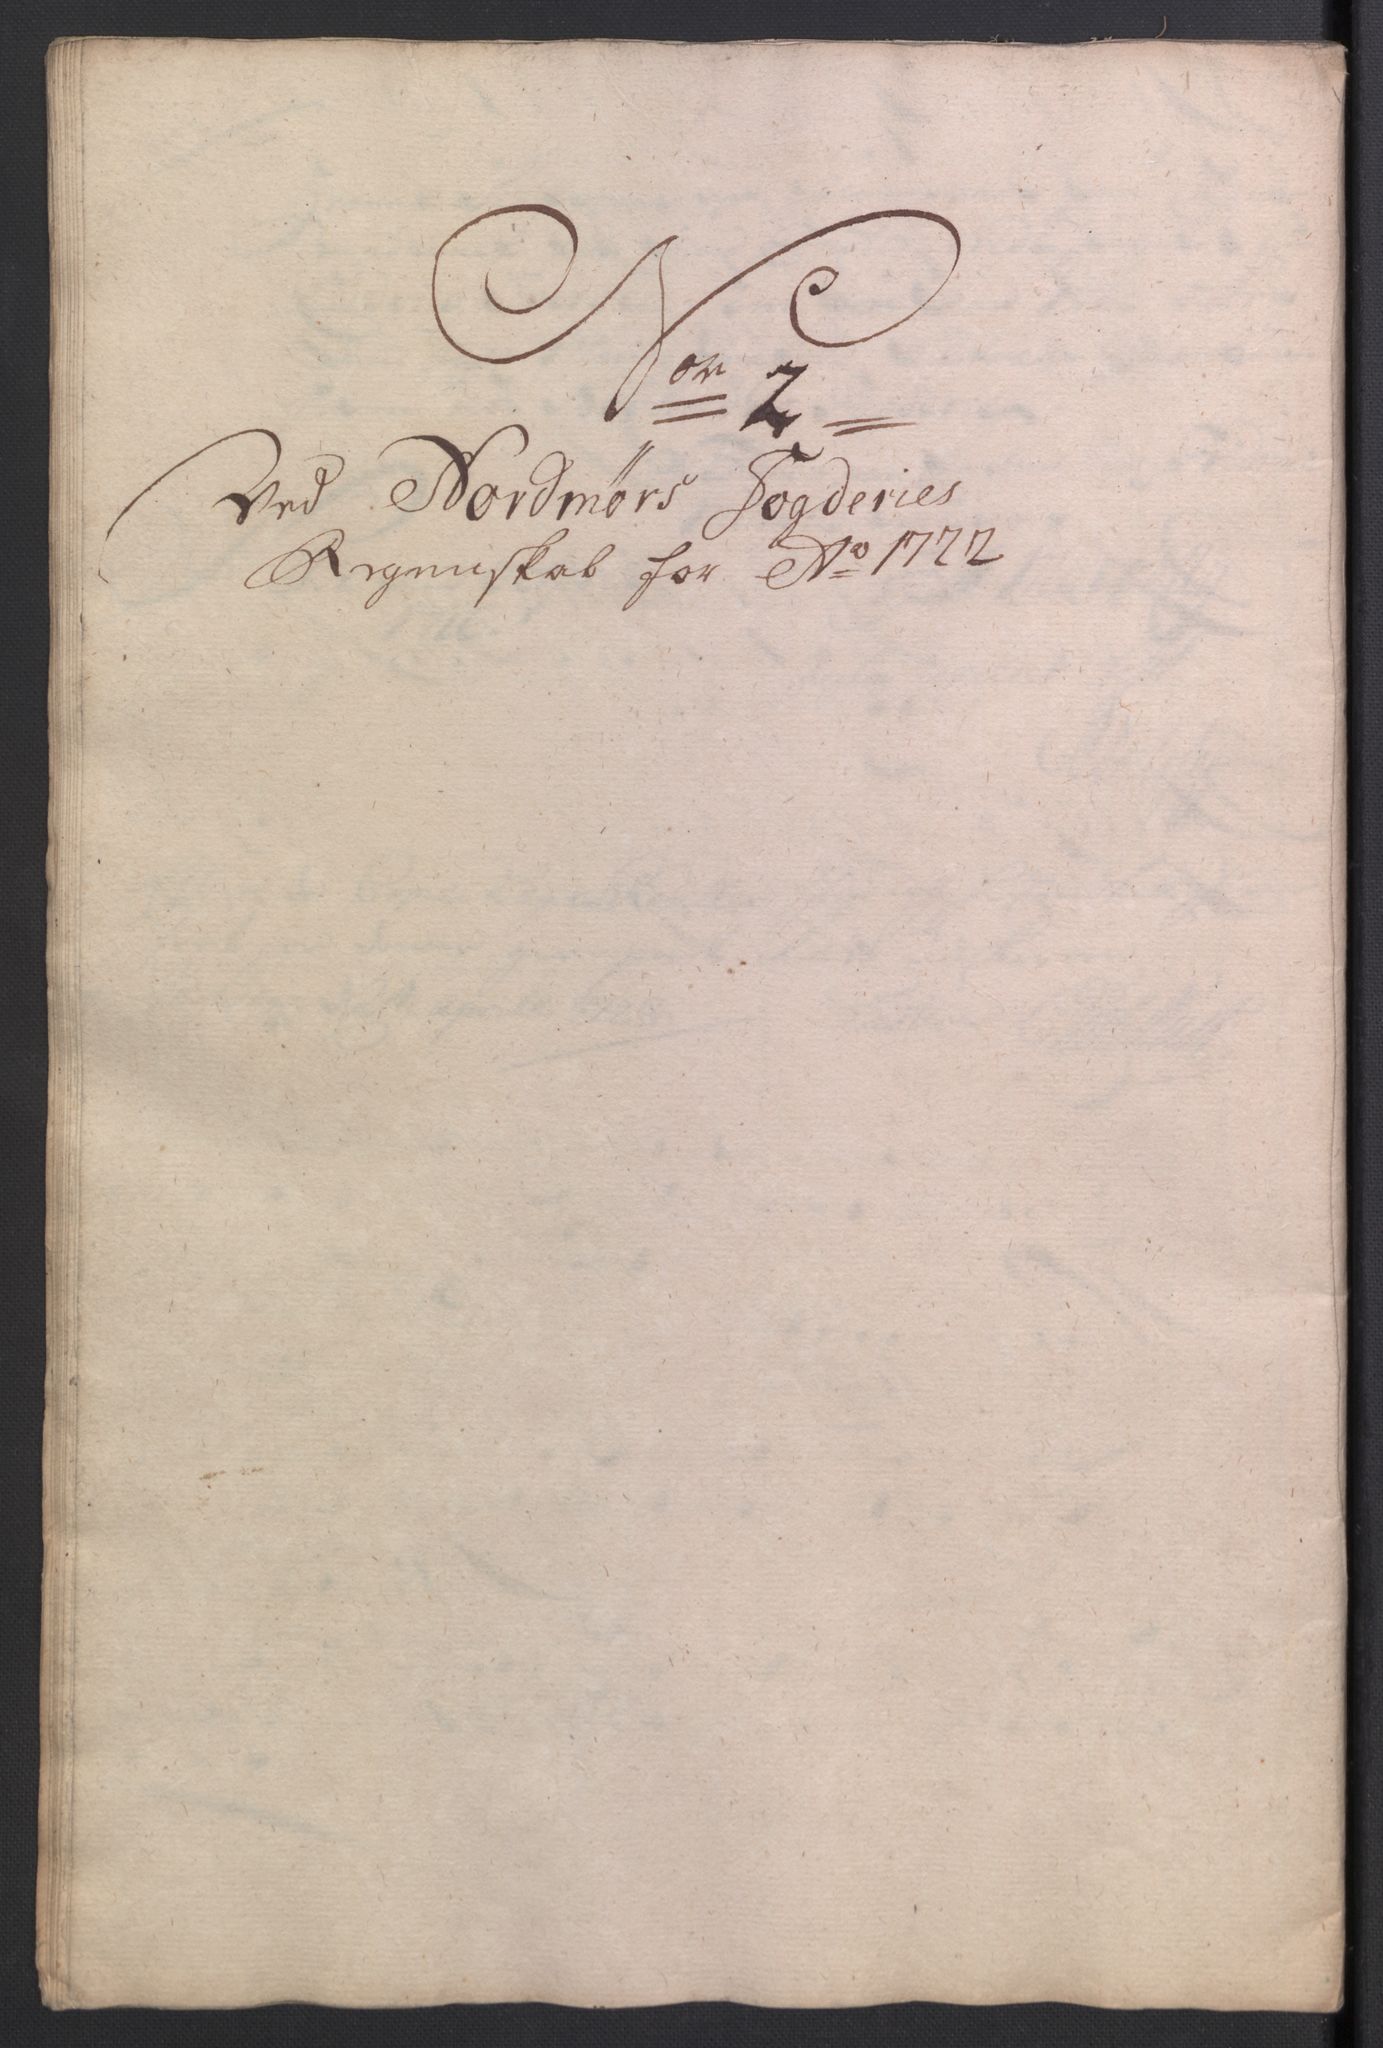 Nor 2
Ved Nordmørs Fogderies
Regenskab for Ao 1722